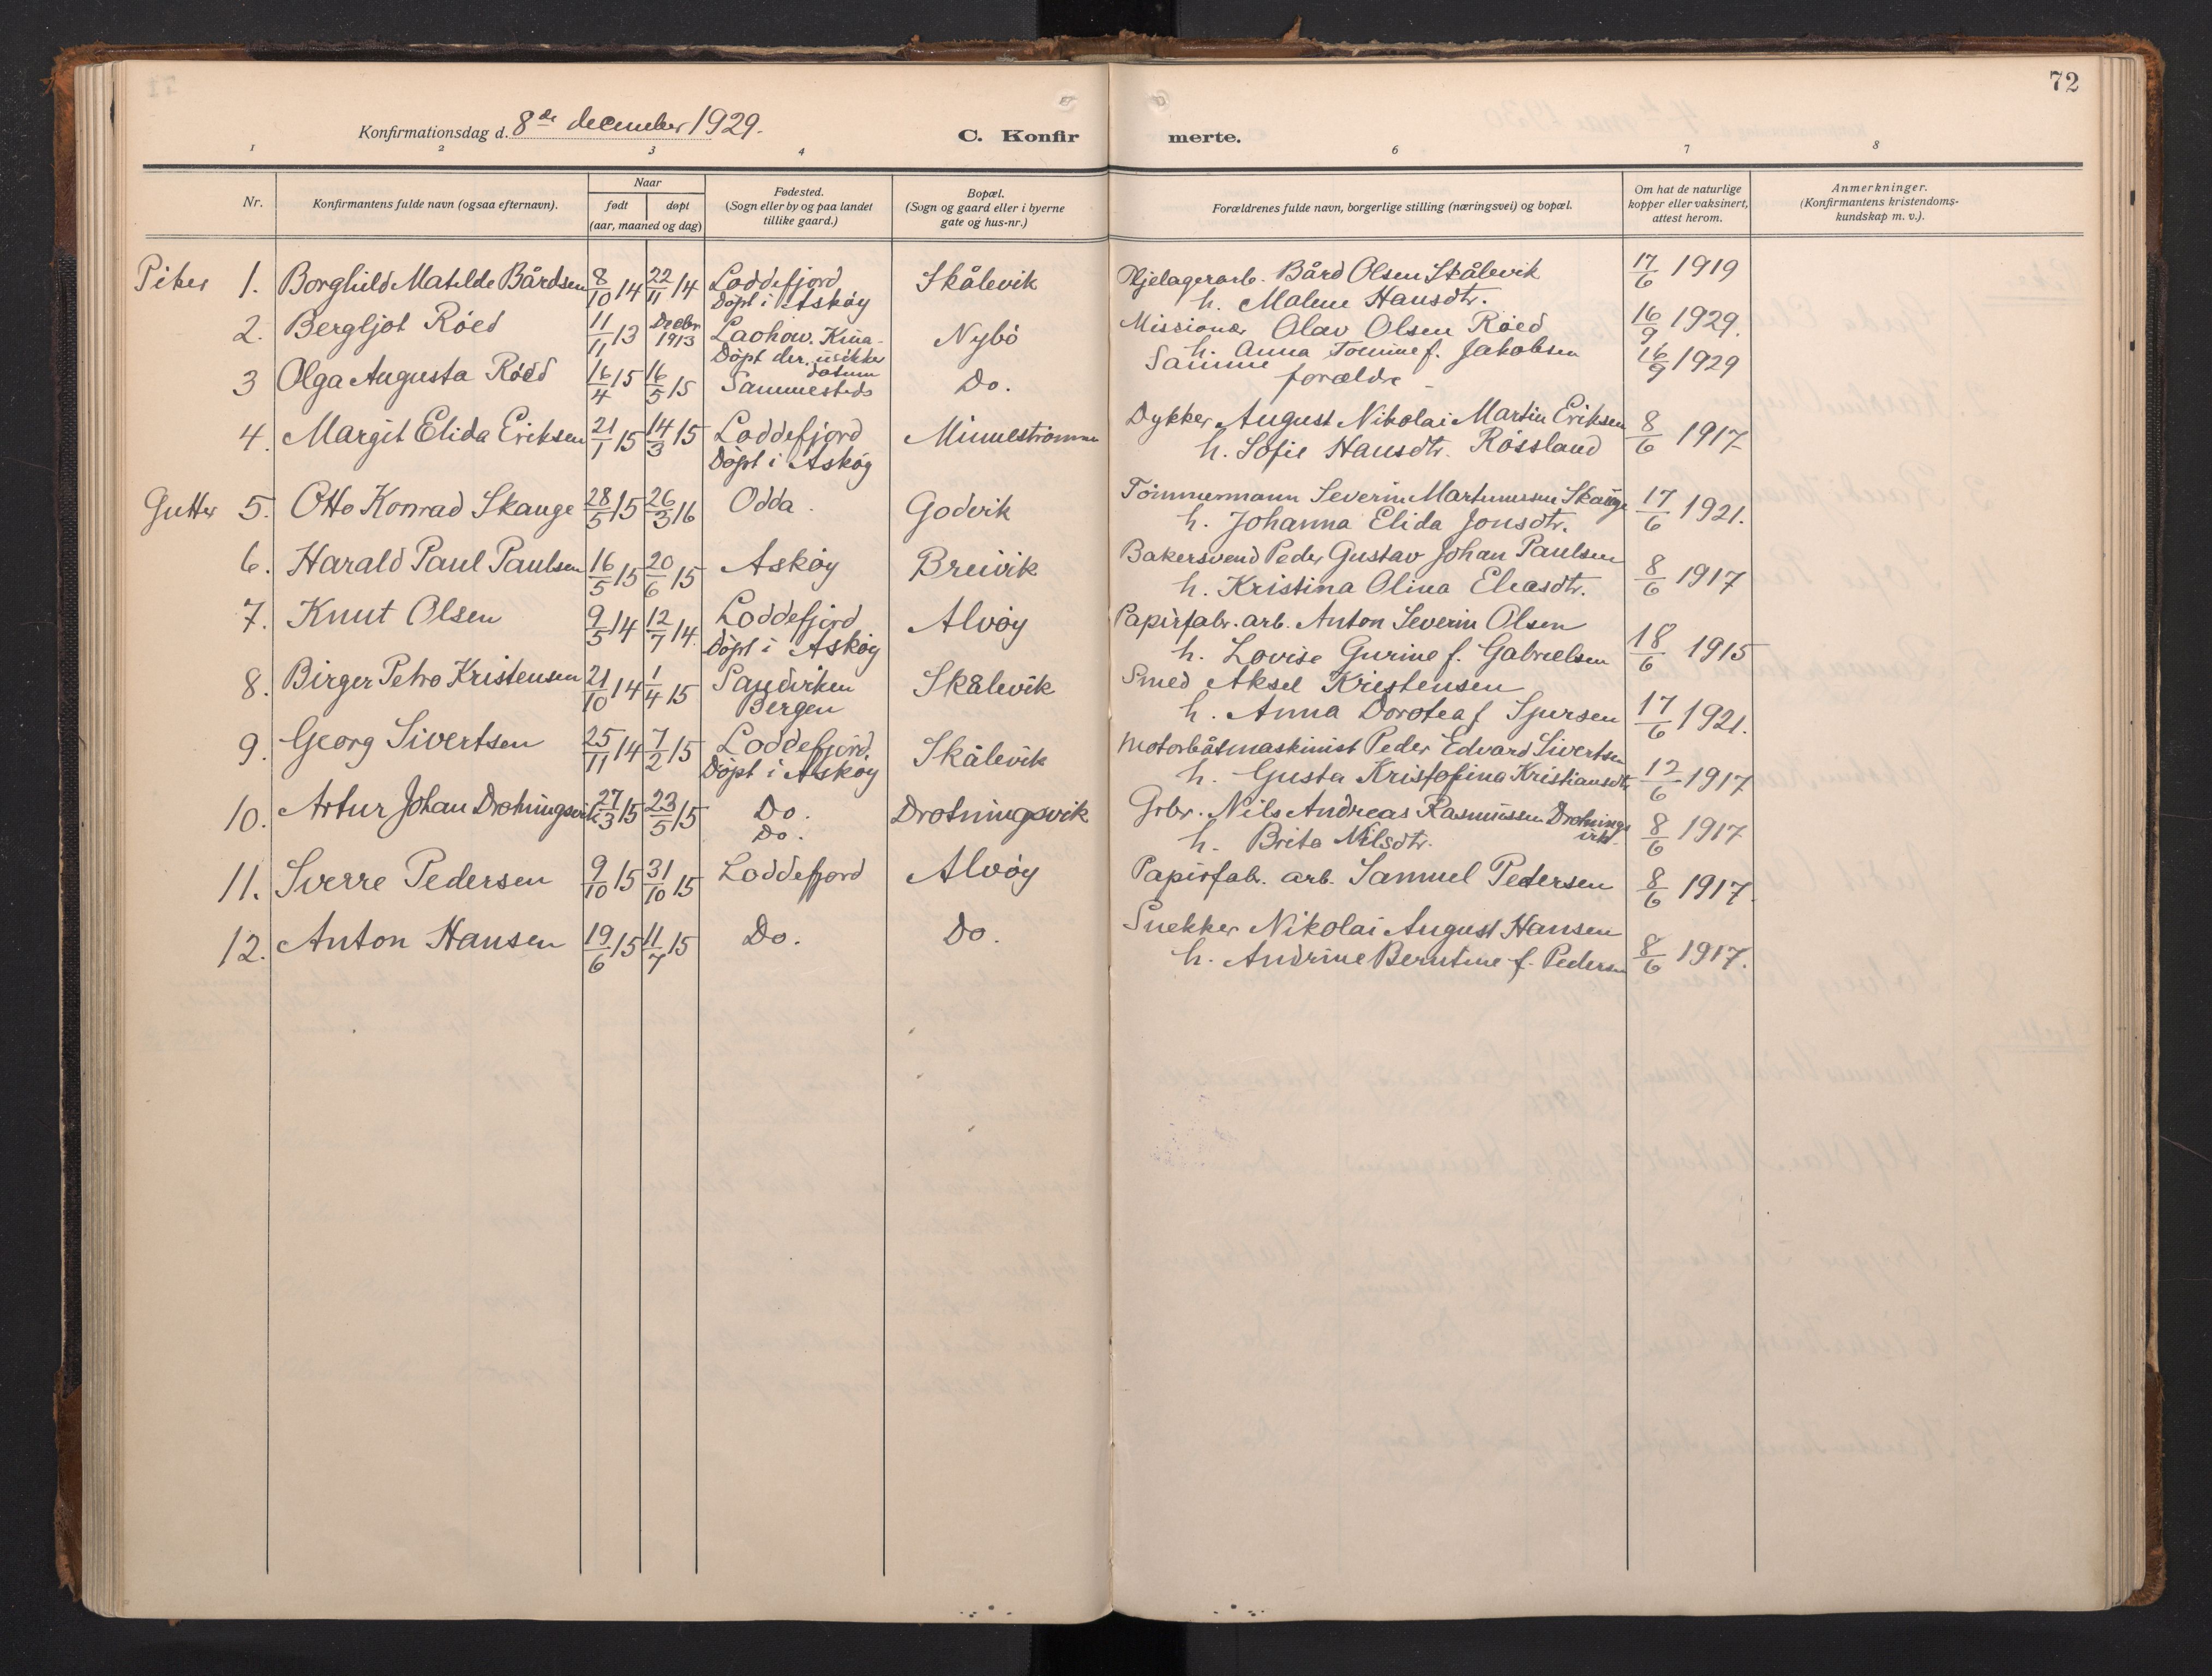 72
Konfirmationsdag d. 8de december 1929.
C. Konfir merte.
1 2 3 4 6 7 8
Nr.
Konfirmantens fulde navn (ogsaa efternavn).
Naar
født døpt
(aar, maaned og dag)
Fødested.
(Sogn eller by og paa landet
tillike gaard.)
Bopæl.
(Sogn og gaard eller i byerne
gate og hus-nr.)
Forældrenes fulde navn, borgerlige stilling (næringsvei) og bopæl.
Om hat de naturlige
kopper eller vaksinert,
attest herom.
Anmerkninger.
(Konfirmantens kristendoms-
kundskap m. v.).
Piker 1. Borghild Matilde Bårdsen 8/10 14 22/11 14 Loddefjord Skålevik Bård Olsen Skålevik 17/6 1919
Døpt i Askøy h. Malene Hansdtr.
2. Bergljot Röed 11/11 13 Decbr 1913 Laohow. Kina- Nybö Missionær Olav Olsen Röed 16/9 1929.
Döpt der. usikker datum h. Anna Tomine f. Jakobsen
3 Olga Augusta Röed 16/4 15 16/5 15 Sammesteds Do. Samme forældre - 16/9 1929
4. Margit Elida Eriksen 21/1 15 14/3 15 Loddefjord Dykker August Nikolai Martin Eriksen 8/6 1917
Døpt i Askøy h. Sofie Hansdtr. Rössland
Gutter 5. Otto Konrad Skauge 28/5 15 26/3 16 Odda. Godvik Tömmermann Severin Skauge 17/6 1921.
h. Johanna Elida Jonsdtr.
6. Harald Paul Paulsen 16/5 15 20/6 15 Askøy Breivik Bakersvend Peder Gustav Johan Paulsen 8/6 1917
h. Kristina Olina Eleasdtr.
7. Knut Olsen 9/5 14 12/7 14. Loddefjord Alvøy Papirfabr. arb. Anton Severin Olsen 18/6 1915
Døpt i Askøy h. Lovise Gurine f. Gabrielsen
8. Birger Petro Kristensen 21/10 14 1/4 15 Sandviken Skålevik Smed Aksel Kristensen 17/6 1921.
Bergen h. Anna Dorotea f
9. Georg Sivertsen 25/11 14 7/2 15 Loddefjord. Skålevik Motorbåtmaskinist Peder Edvard Sivertsen 12/6 1917
Døpt i Askøy h. Gusta Kristofina Kristiansdtr
10. Artur Johan Drotningsvik 27/3 15 23/5 15 Do. Drotningsvik Grbr. Nils Andreas Rasmussen Drotnings vik. 8/6 1917
Do. h. Brita Nilsdtr.
11. Sverre Pedersen 9/10 15 31/10 15 Loddefjord Alvøy Papirfab. arb. Samuel Pedersen 8/6 1917.
12. Anton Hansen 19/6 15 11/7 15 Do. Do. Snekker Nikolai August Hansen 8/6 1917.
h. Andrine Berntine f. Pedersen